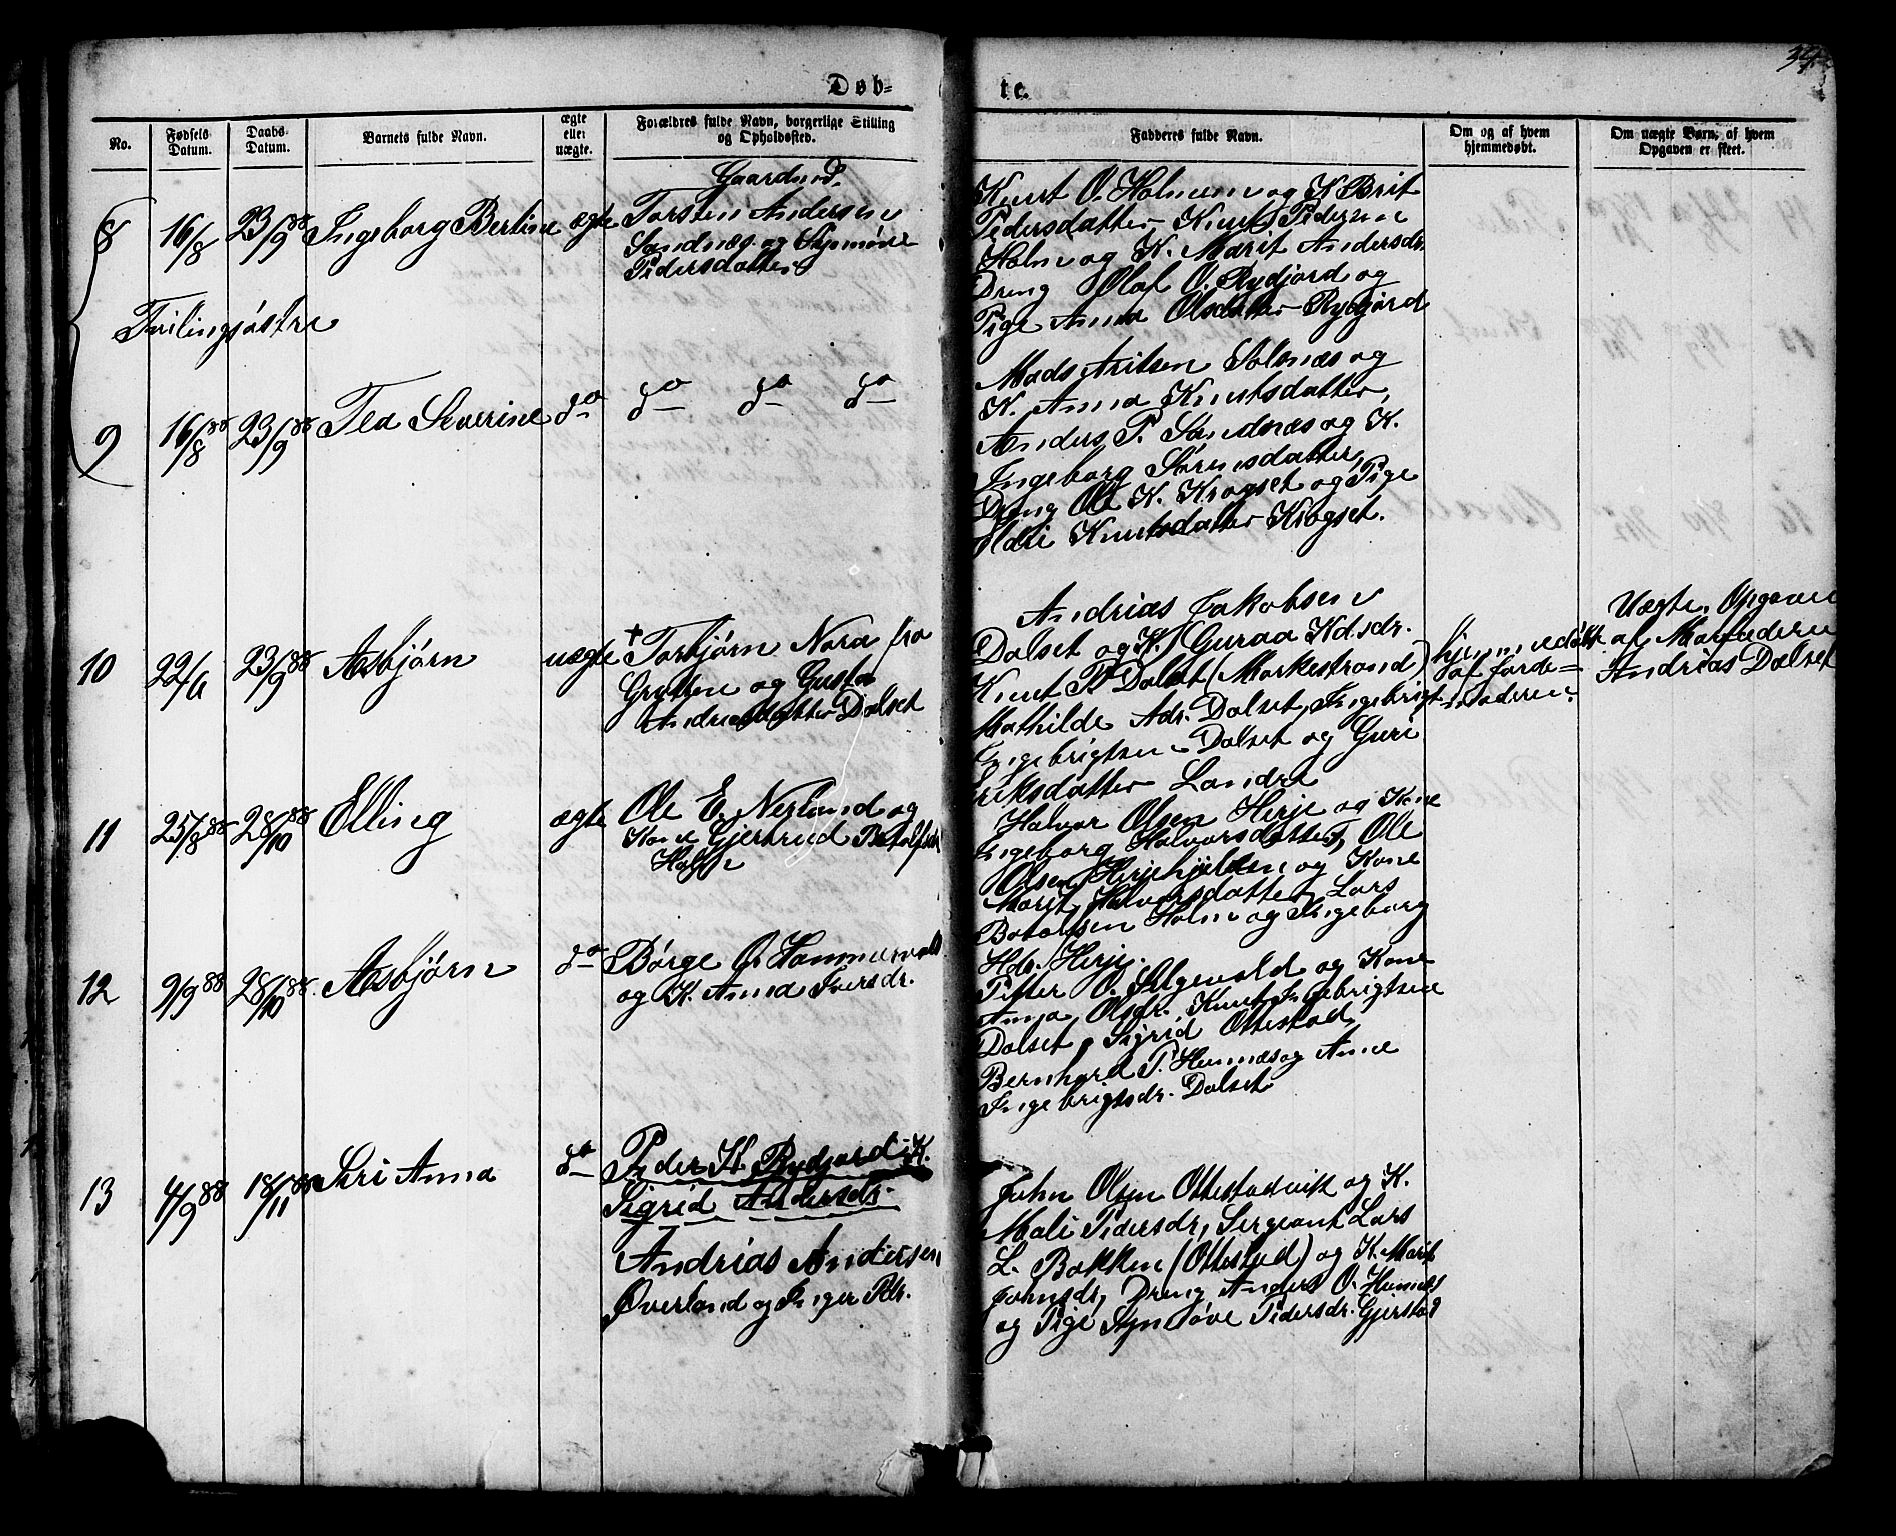 34
Døb-
te.
No.
Fødsels Datum.
Daabs Datum.
Barnets fulde Navn.
ægte eller uægte.
Forældres fulde Navn, borgerlige Stilling og Opholdssted.
Fadderes fulde Navn.
Om og af hvem hjemmedøbt.
Om uægte Børn; af hvem Opgaven er skeet.
8 16/8 23/9 88 Ingeborg Berline ægte
Gaardmd.
Torsten Andersen
Sandnæs og Synnøve
Pedersdatter
Knut O. Holmen og K. Brit
Pedersdatter Knut Pedersen
Holm og K. Marit Andersdr.
Dreng Olaf O. Rydjord og
Pige Anna Olsdatter Rydjord
Tvilingsøstre
9 16/8 88 23/9 88 Tea Severine do
do do do
Mads Solnæs og
K. Anna Knutsdatter,
Anders P. Sandnæs og K.
Ingeborg Sørensdatter,
Dreng Ole K. Krogset og Pige
Ildri Knutsdatter Krogset.
10 22/6 23/9 88 Asbjørn uægte
+ Torbjørn Nora fra
Gryten og Gusta
Andreasdatter Dalset
Andrias Jakobsen
Dalset og K. Guraa Kdsdr.
Knut P. Dalset (Markestrand)
Mathilde Adr. Dalset, Ingebrigt
Ingebrigtsen Dalset og Guri
Eriksdatter Landre
hjemmedøbt
af Jorde=
moderen.
Uægte. Opgaven
af Morfaderen
Andrias Dalset
11 25/8 88 28/10 88 Elling ægte
Ole E. Nerland og
Kone Gjertrud
Holm
Halvor Olsen Herje og Kone
Ingeborg Halvorsdatter, Ole
Olsen Herjehjelden og Kone
Marit Halvorsdatter, Lars
Botolfsen Holm og Ingeborg
Hdr. Herje.
12 9/9 88 28/10 88. Asbjørn do
Børge O. Hammervold
og K. Anna Iversdr.
Petter O. Selgevold og Kone
Anna Olsdr., Knut Ingebrigtsen
Dalset, Sigrid Ottestad
Bernhard P. Hennæs og Anne
Ingebrigtsdr. Dalset
13 4/9 88 18/11 88 Siri Anna do
Peder K. Rydjord K.
Sigrid Andersdr.
Andrias Andersen
Øverland og Inger Pdr.
John Olsen Ottestadvik og K.
Mali Pedersdr, Sergeant Lars
L. Bakken (Ottestad) og K. Marit
Johnsdr, Dreng Anders O. Hennæs
og Pige Synnøve Pedersdr. Gjerstad